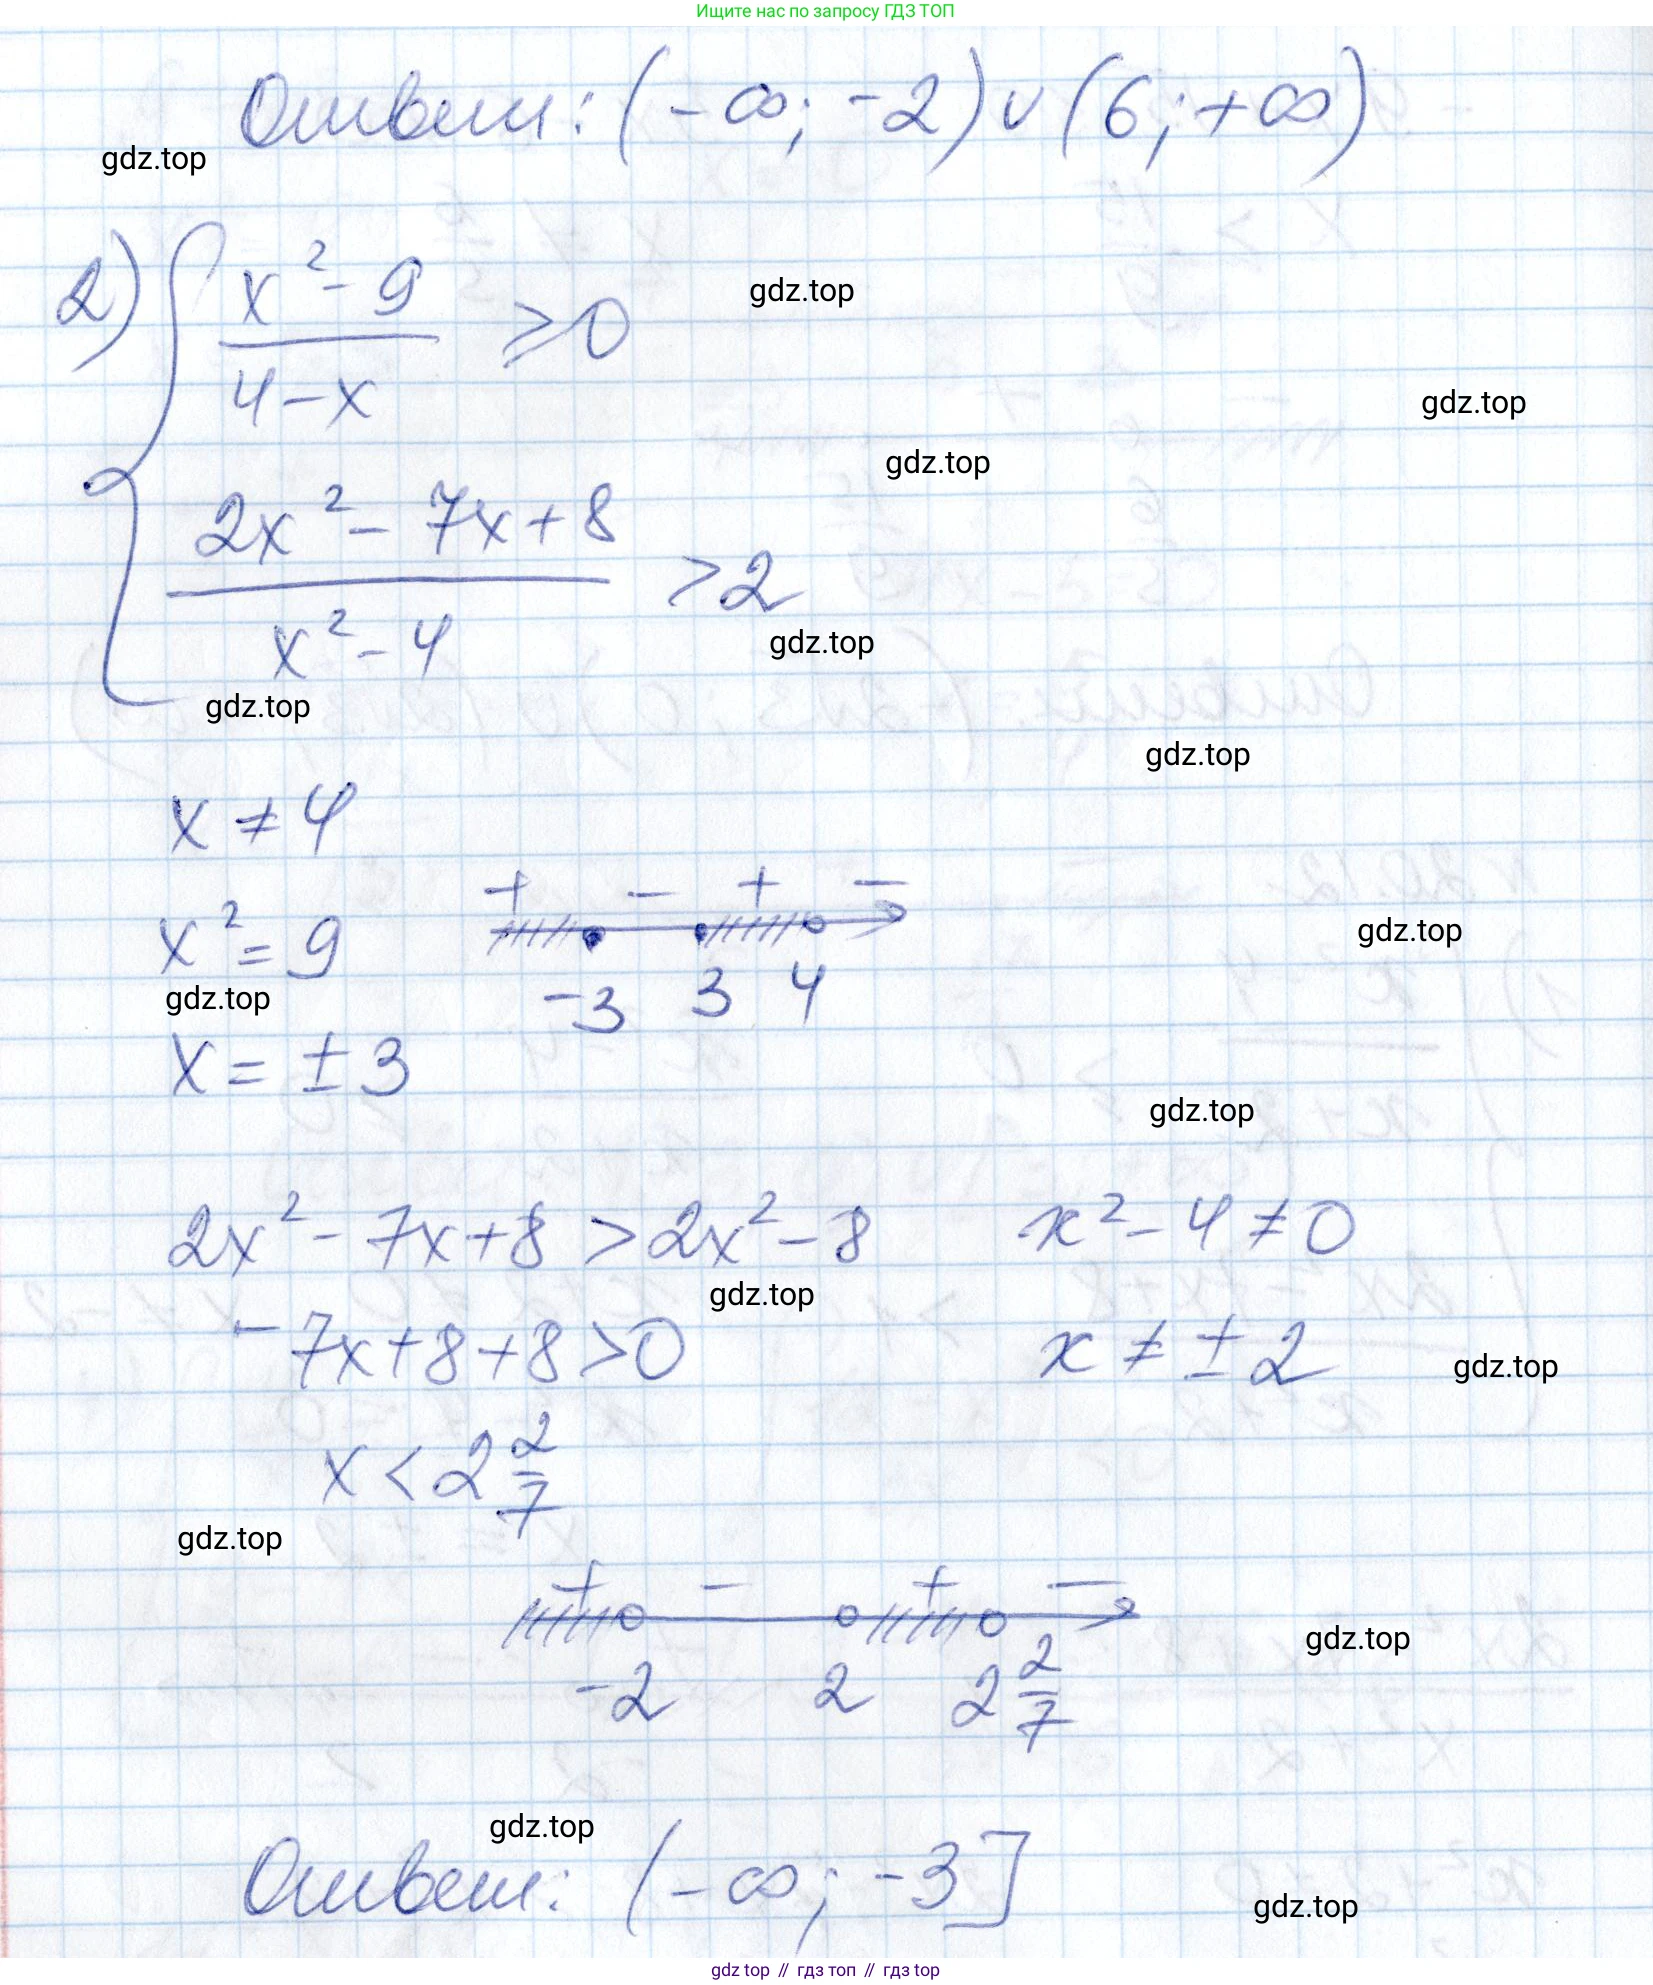 Ищите нас по запросу ГДЗ ТОП
Ответ: (-∞; -2) ∪ (6; +∞)
gdz.top
2) { (x² - 9)/(4 - x) ≥ 0
gdz.top
gdz.top
gdz.top
(2x² - 7x + 8)/(x² - 4) > 2
gdz.top
gdz.top
gdz.top
x ≠ 4
+ - + -
x² = 9
gdz.top
-3 3 4
gdz.top
x = ± 3
gdz.top
2x² - 7x + 8 > 2x² - 8 x² - 4 ≠ 0
gdz.top
- 7x + 8 + 8 > 0 x ≠ ± 2
gdz.top
x < 2 2/7
gdz.top
+ - + -
gdz.top
-2 2 2 2/7
gdz.top
Ответ: (-∞; -3]
gdz.top
gdz top // гдз топ // гдз top